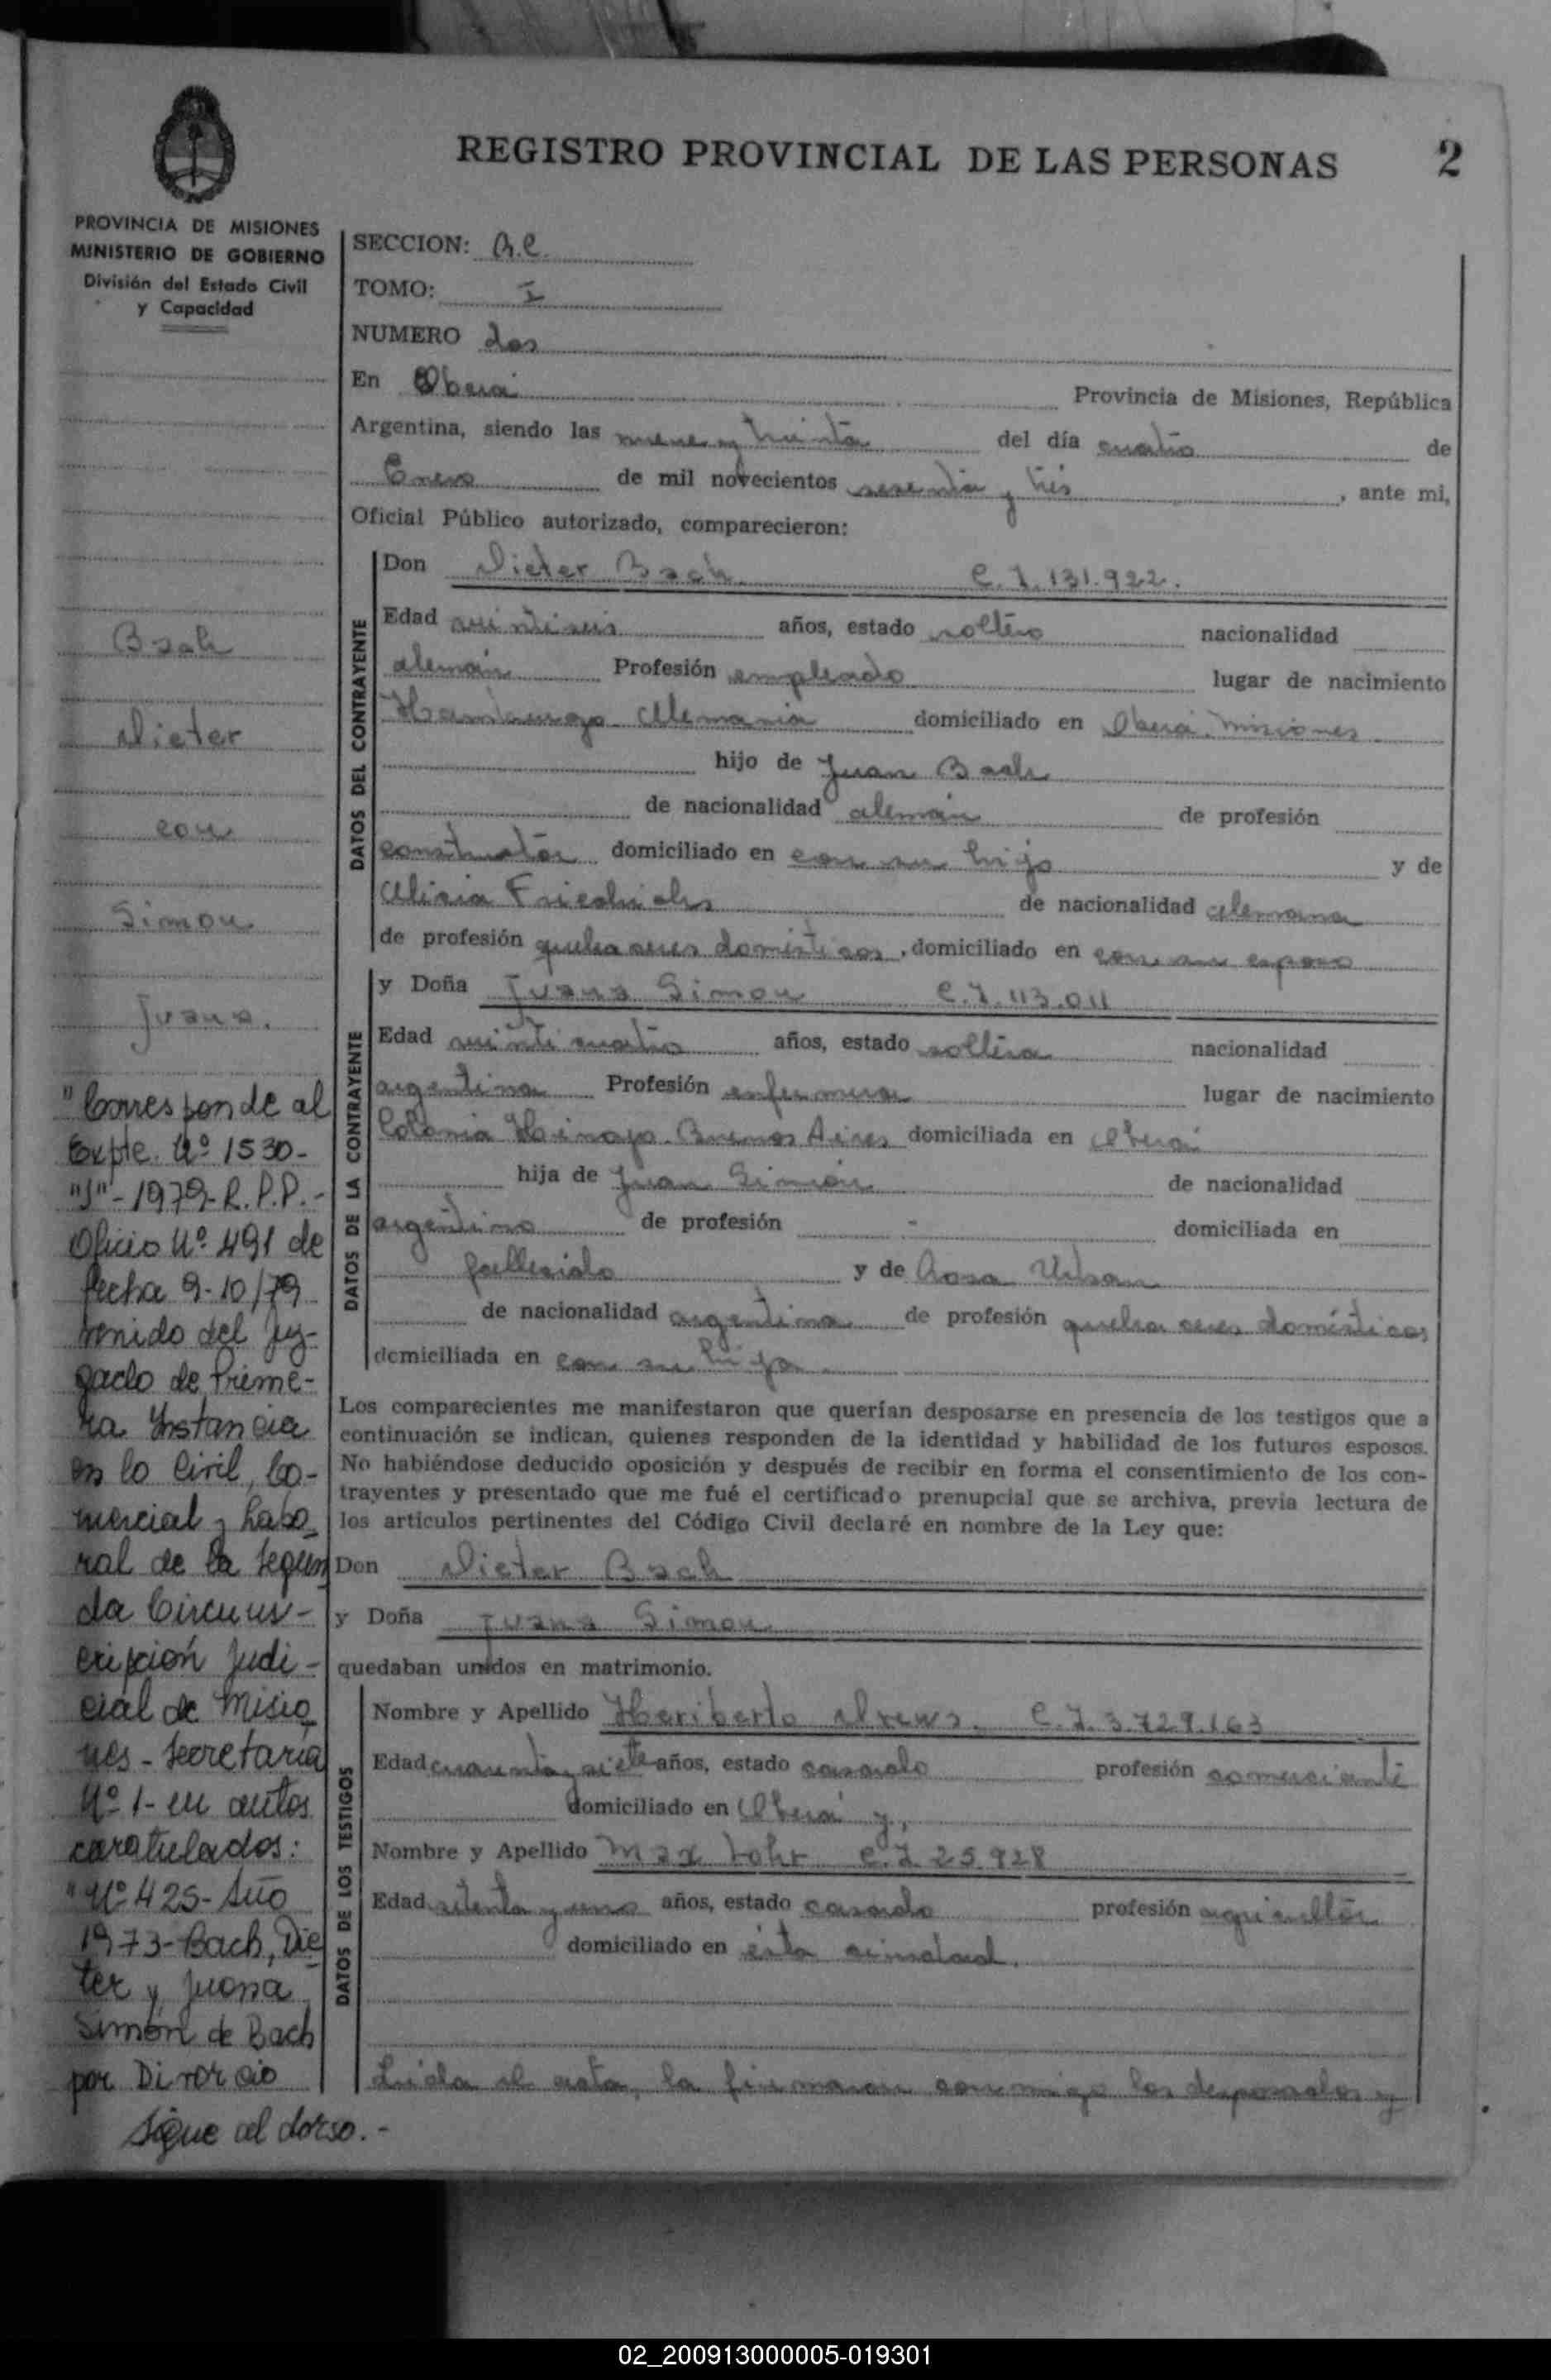 REGISTRO PROVINCIAL DE LAS PERSONAS 2
PROVINCIA DE MISIONES
MINISTERIO DE GOBIERNO
División del Estado Civil
y Capacidad
SECCION: A.C.
TOMO: I
NUMERO dos
En Oberá Provincia de Misiones, República
Argentina, siendo las nueve y treinta del día cuatro de
Enero de mil novecientos sesenta y tres, ante mi,
Oficial Público autorizado, comparecieron:
DATOS DEL CONTRAYENTE
Don Dieter Bach C.I. 131.922.
Edad veintiseis años, estado soltero nacionalidad
alemán Profesión empleado lugar de nacimiento
Hamburgo Alemania domiciliado en Oberá. Misiones
hijo de Juan Bach
de nacionalidad alemán de profesión
constructor domiciliado en con su hijo y de
Alicia Friedrichs de nacionalidad alemana
de profesión quehaceres domésticos, domiciliado en con su esposo
DATOS DE LA CONTRAYENTE
y Doña Juana Simon C.I. 113.011
Edad veinticuatro años, estado soltera nacionalidad
argentina Profesión enfermera lugar de nacimiento
Colonia Hinojo. Buenos Aires domiciliada en Oberá
hija de Juan Simón de nacionalidad
argentino de profesión - domiciliada en
fallecido y de Rosa Urban
de nacionalidad argentina de profesión quehaceres domésticos
domiciliada en con su hija.
Los comparecientes me manifestaron que querían desposarse en presencia de los testigos que a
continuación se indican, quienes responden de la identidad y habilidad de los futuros esposos.
No habiéndose deducido oposición y después de recibir en forma el consentimiento de los con-
trayentes y presentado que me fué el certificado prenupcial que se archiva, previa lectura de
los artículos pertinentes del Código Civil declaré en nombre de la Ley que:
Don Dieter Bach
y Doña Juana Simon
quedaban unidos en matrimonio.
DATOS DE LOS TESTIGOS
Nombre y Apellido Heriberto C.I. 3.729.163
Edad cuarenta y siete años, estado casado profesión comerciante
domiciliado en Oberá y,
Nombre y Apellido Max Lohr C.I. 25.928
Edad setenta y uno años, estado casado profesión agricultor
domiciliado en ésta ciudad.
Leída el acta, la firmaron conmigo los desposados y
Bach
Dieter
con
Simon
Juana.
"Corresponde al
Expte. Nº 1530-
"J"-1979-R.P.P.-
Oficio Nº 491 de
fecha 9-10/79
venido del Juz-
gado de Prime-
ra Instancia
en lo Civil, Co-
mercial y Labo-
ral de la Segun
da Circuns-
cripción Judi-
cial de Misio
nes-Secretaría
Nº 1-en autos
caratulados:
"Nº 425-Año
1973-Bach, Die
ter y Juana
Simón de Bach
por Divorcio
Sigue al dorso.-
02_200913000005-019301